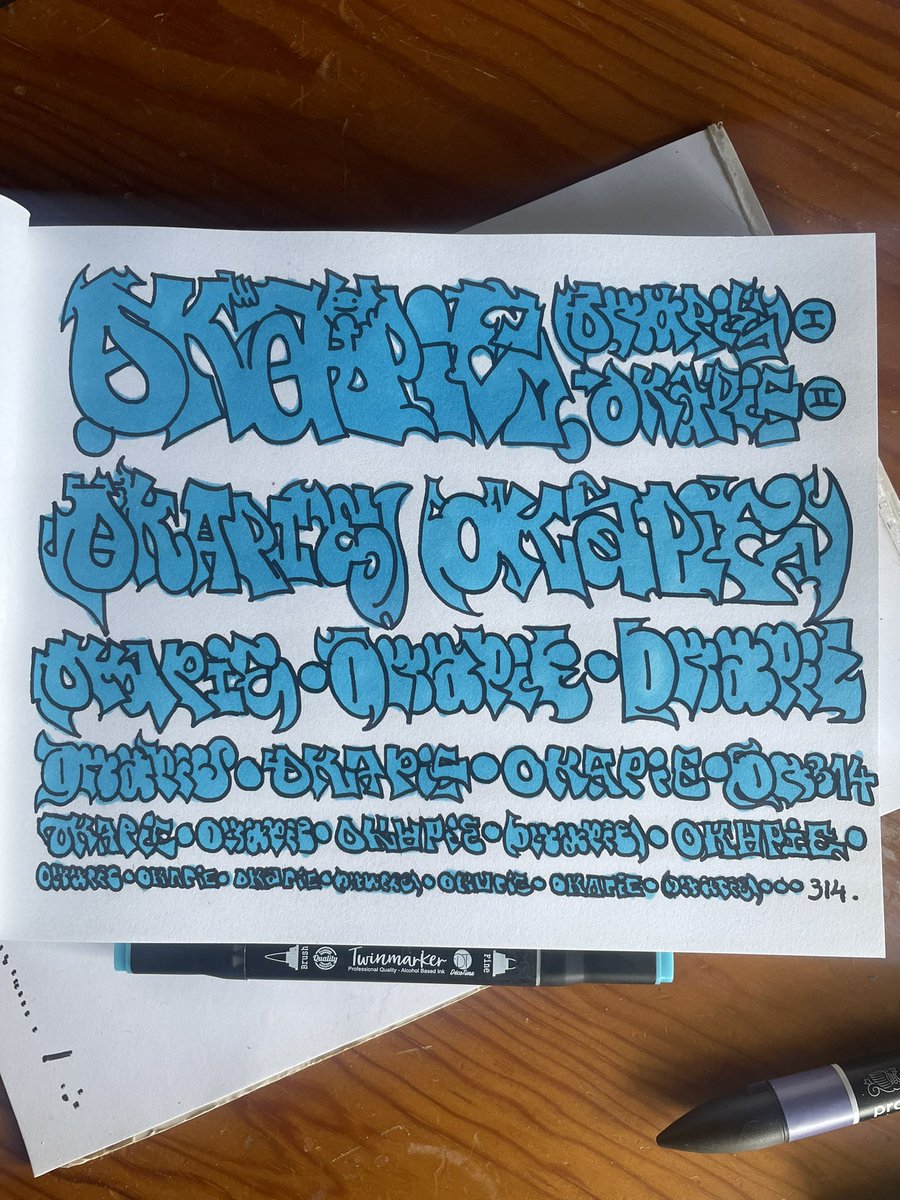 OKAPIE OKAPIE I
OKAPIE II
OKAPIE OKAPIE
OKAPIE • OKAPIE • OKAPIE
OKAPIE • OKAPIE • OKAPIE • 314
OKAPIE • OKAPIE • OKAPIE • (OKAPIE) • OKAPIE •
OKAPIE • OKAPIE • OKAPIE • OKAPIE • OKAPIE • OKAPIE • (OKAPIE) • • • 314.
Brush Quality Twinmarker DecoTime Fine
Professional Quality - Alcohol Based Ink
pro